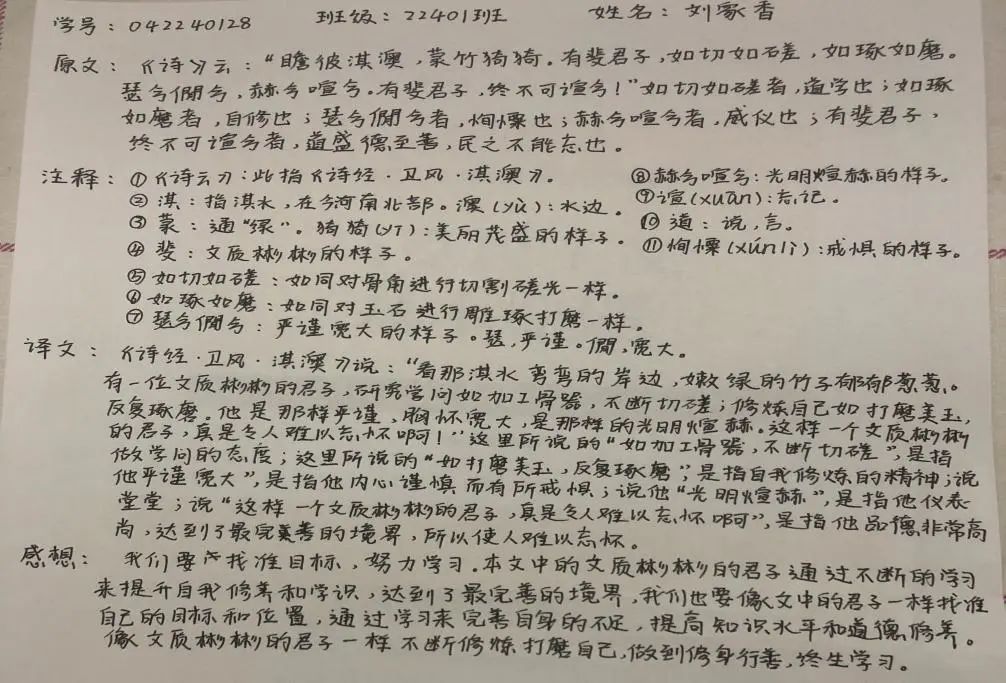 学号：042240128 班级：22401班 姓名：刘家香
原文：《诗》云："瞻彼淇澳，菉竹猗猗。有斐君子，如切如磋，如琢如磨。
瑟兮僩兮，赫兮喧兮。有斐君子，终不可諠兮！"如切如磋者，道学也；如琢
如磨者，自修也；瑟兮僩兮者，恂慄也；赫兮喧兮者，威仪也；有斐君子，
终不可諠兮者，道盛德至善，民之不能忘也。
注释：①《诗云》：此指《诗经·卫风·淇澳》。 ⑧赫兮喧兮：光明煊赫的样子。
②淇：指淇水，在今河南北部。澳(yù)：水边。 ⑨諠(xuān)：忘记。
③菉：通"绿"。猗猗(yī)：美丽茂盛的样子。 ⑩道：说，言。
④斐：文质彬彬的样子。 ⑪恂慄(xúnlì)：戒惧的样子。
⑤如切如磋：如同对骨角进行切割磋光一样。
⑥如琢如磨：如同对玉石进行雕琢打磨一样。
⑦瑟兮僩兮：严谨宽大的样子。瑟，严谨。僩，宽大。
译文：《诗经·卫风·淇澳》说："看那淇水弯弯的岸边，嫩绿的竹子郁郁葱葱。
有一位文质彬彬的君子，研究学问如加工骨器，不断切磋；修炼自己如打磨美玉，
反复琢磨。他是那样严谨，胸怀宽大，是那样的光明煊赫。这样一个文质彬彬
的君子，真是令人难以忘怀啊！"这里所说的"如加工骨器，不断切磋"，是指
做学问的态度；这里所说的"如打磨美玉，反复琢磨"，是指自我修炼的精神；说
他严谨宽大"，是指他内心谨慎而有所戒惧；说他"光明煊赫"，是指他仪表
堂堂；说"这样一个文质彬彬的君子，真是令人难以忘怀啊"，是指他品德非常高
尚，达到了最完美善的境界，所以使人难以忘怀。
感想： 我们要找准目标，努力学习。本文中的文质彬彬的君子通过不断的学习
来提升自我修养和学识，达到了最完善的境界，我们也要像文中的君子一样找准
自己的目标和位置，通过学习来完善自身的不足，提高知识水平和道德修养。
像文质彬彬的君子一样不断修炼打磨自己，做到修身行善，终生学习。